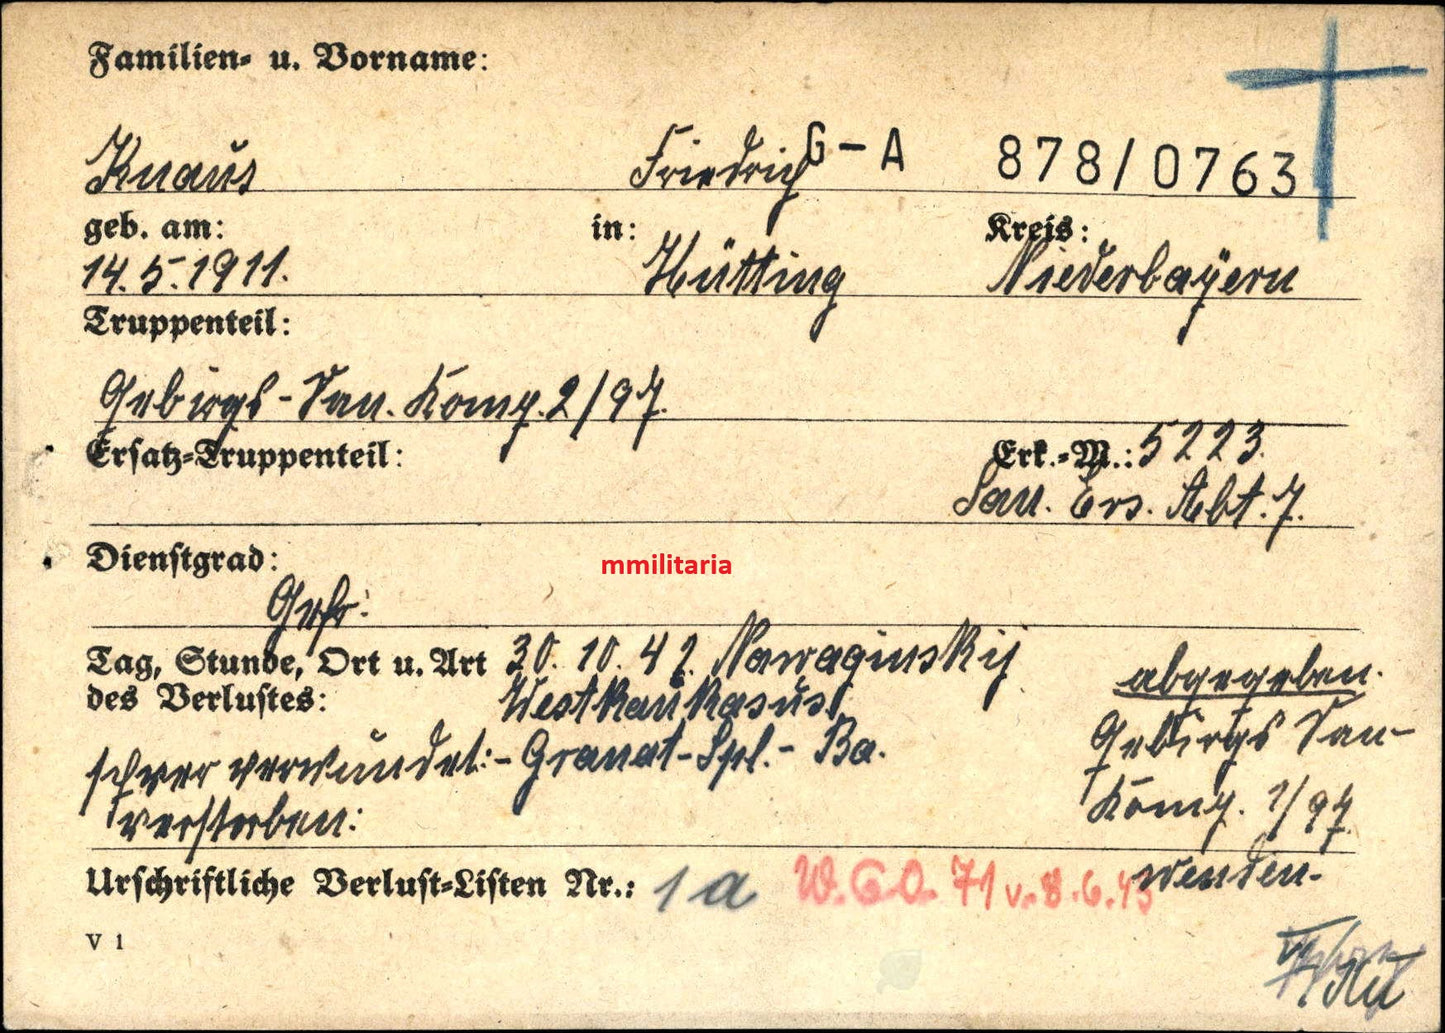 Familien- u. Vorname:
Knaus Friedrich G-A 878/0763
geb. am: in: Kreis:
14.5.1911. Hütting Niederbayern
Truppenteil:
Gebirgs-San. Komp. 2/97.
Ersatz-Truppenteil: Erk.-M.: 5223.
San. Ers. Abt. 7.
Dienstgrad:
Gefr.
Tag, Stunde, Ort u. Art 30. 10. 42. Nawaginskij
des Verlustes: Westkaukasus
abgegeben.
schwer verwundet:- Granat-Spl.- Ba.
Gebirgs San-
verstorben:
Komp. 1/97.
Urschriftliche Verlust-Listen Nr.: 1a 71 v. 8.6.43 wenden.
V 1
mmilitaria